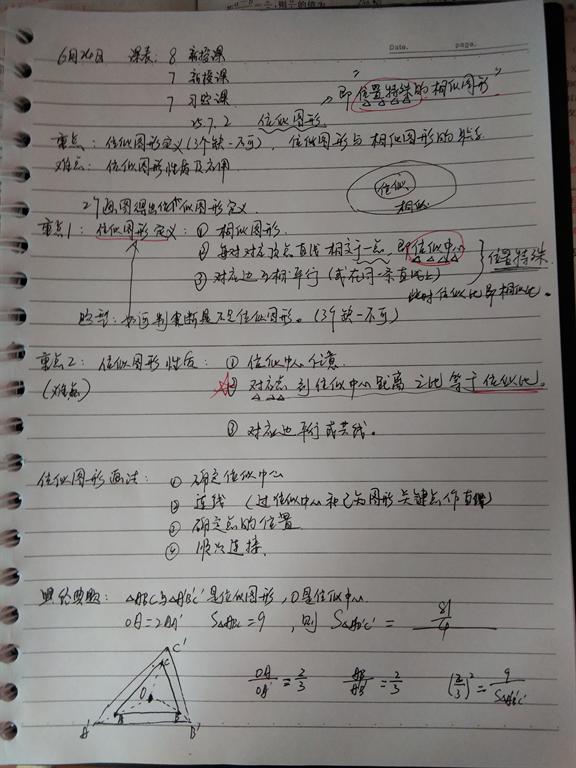 Date. page.
6月26日 课表: 8 新授课
7 新授课
7 习题课
"即位置特殊的相似图形"
25.7.2 位似图形
重点: 位似图形定义(3个缺一不可), 位似图形与相似图形的
难点: 位似图形性质及应用
位似
相似
2个画图得出位似图形定义
重点1: 位似图形定义: ① 相似图形.
② 每对对应顶点直线相交于一点, 即位似中心
③ 对应边互相平行(或在同一条直线上)
位置特殊.
此时位似比即相似比。
题型: 如何判断是不是位似图形。(3个缺一不可)
重点2: 位似图形性质: ① 位似中心任意.
(难点) ② 对应点到位似中心距离之比等于位似比。
③ 对应边平行或共线。
位似图形画法: ① 确定位似中心
② 连线 (过位似中心和已知图形关键点作直线)
③ 确定点的位置
④ 顺次连接.
典经典题: △ABC与△A'B'C'是位似图形, O是位似中心.
OA=2AA' S△ABC=9, 则 S△A'B'C' = 81/4
OA/OA' = 2/3 AB/A'B' = 2/3 (2/3)² = 9/S△A'B'C'
C'
C
O
A B
A' B'